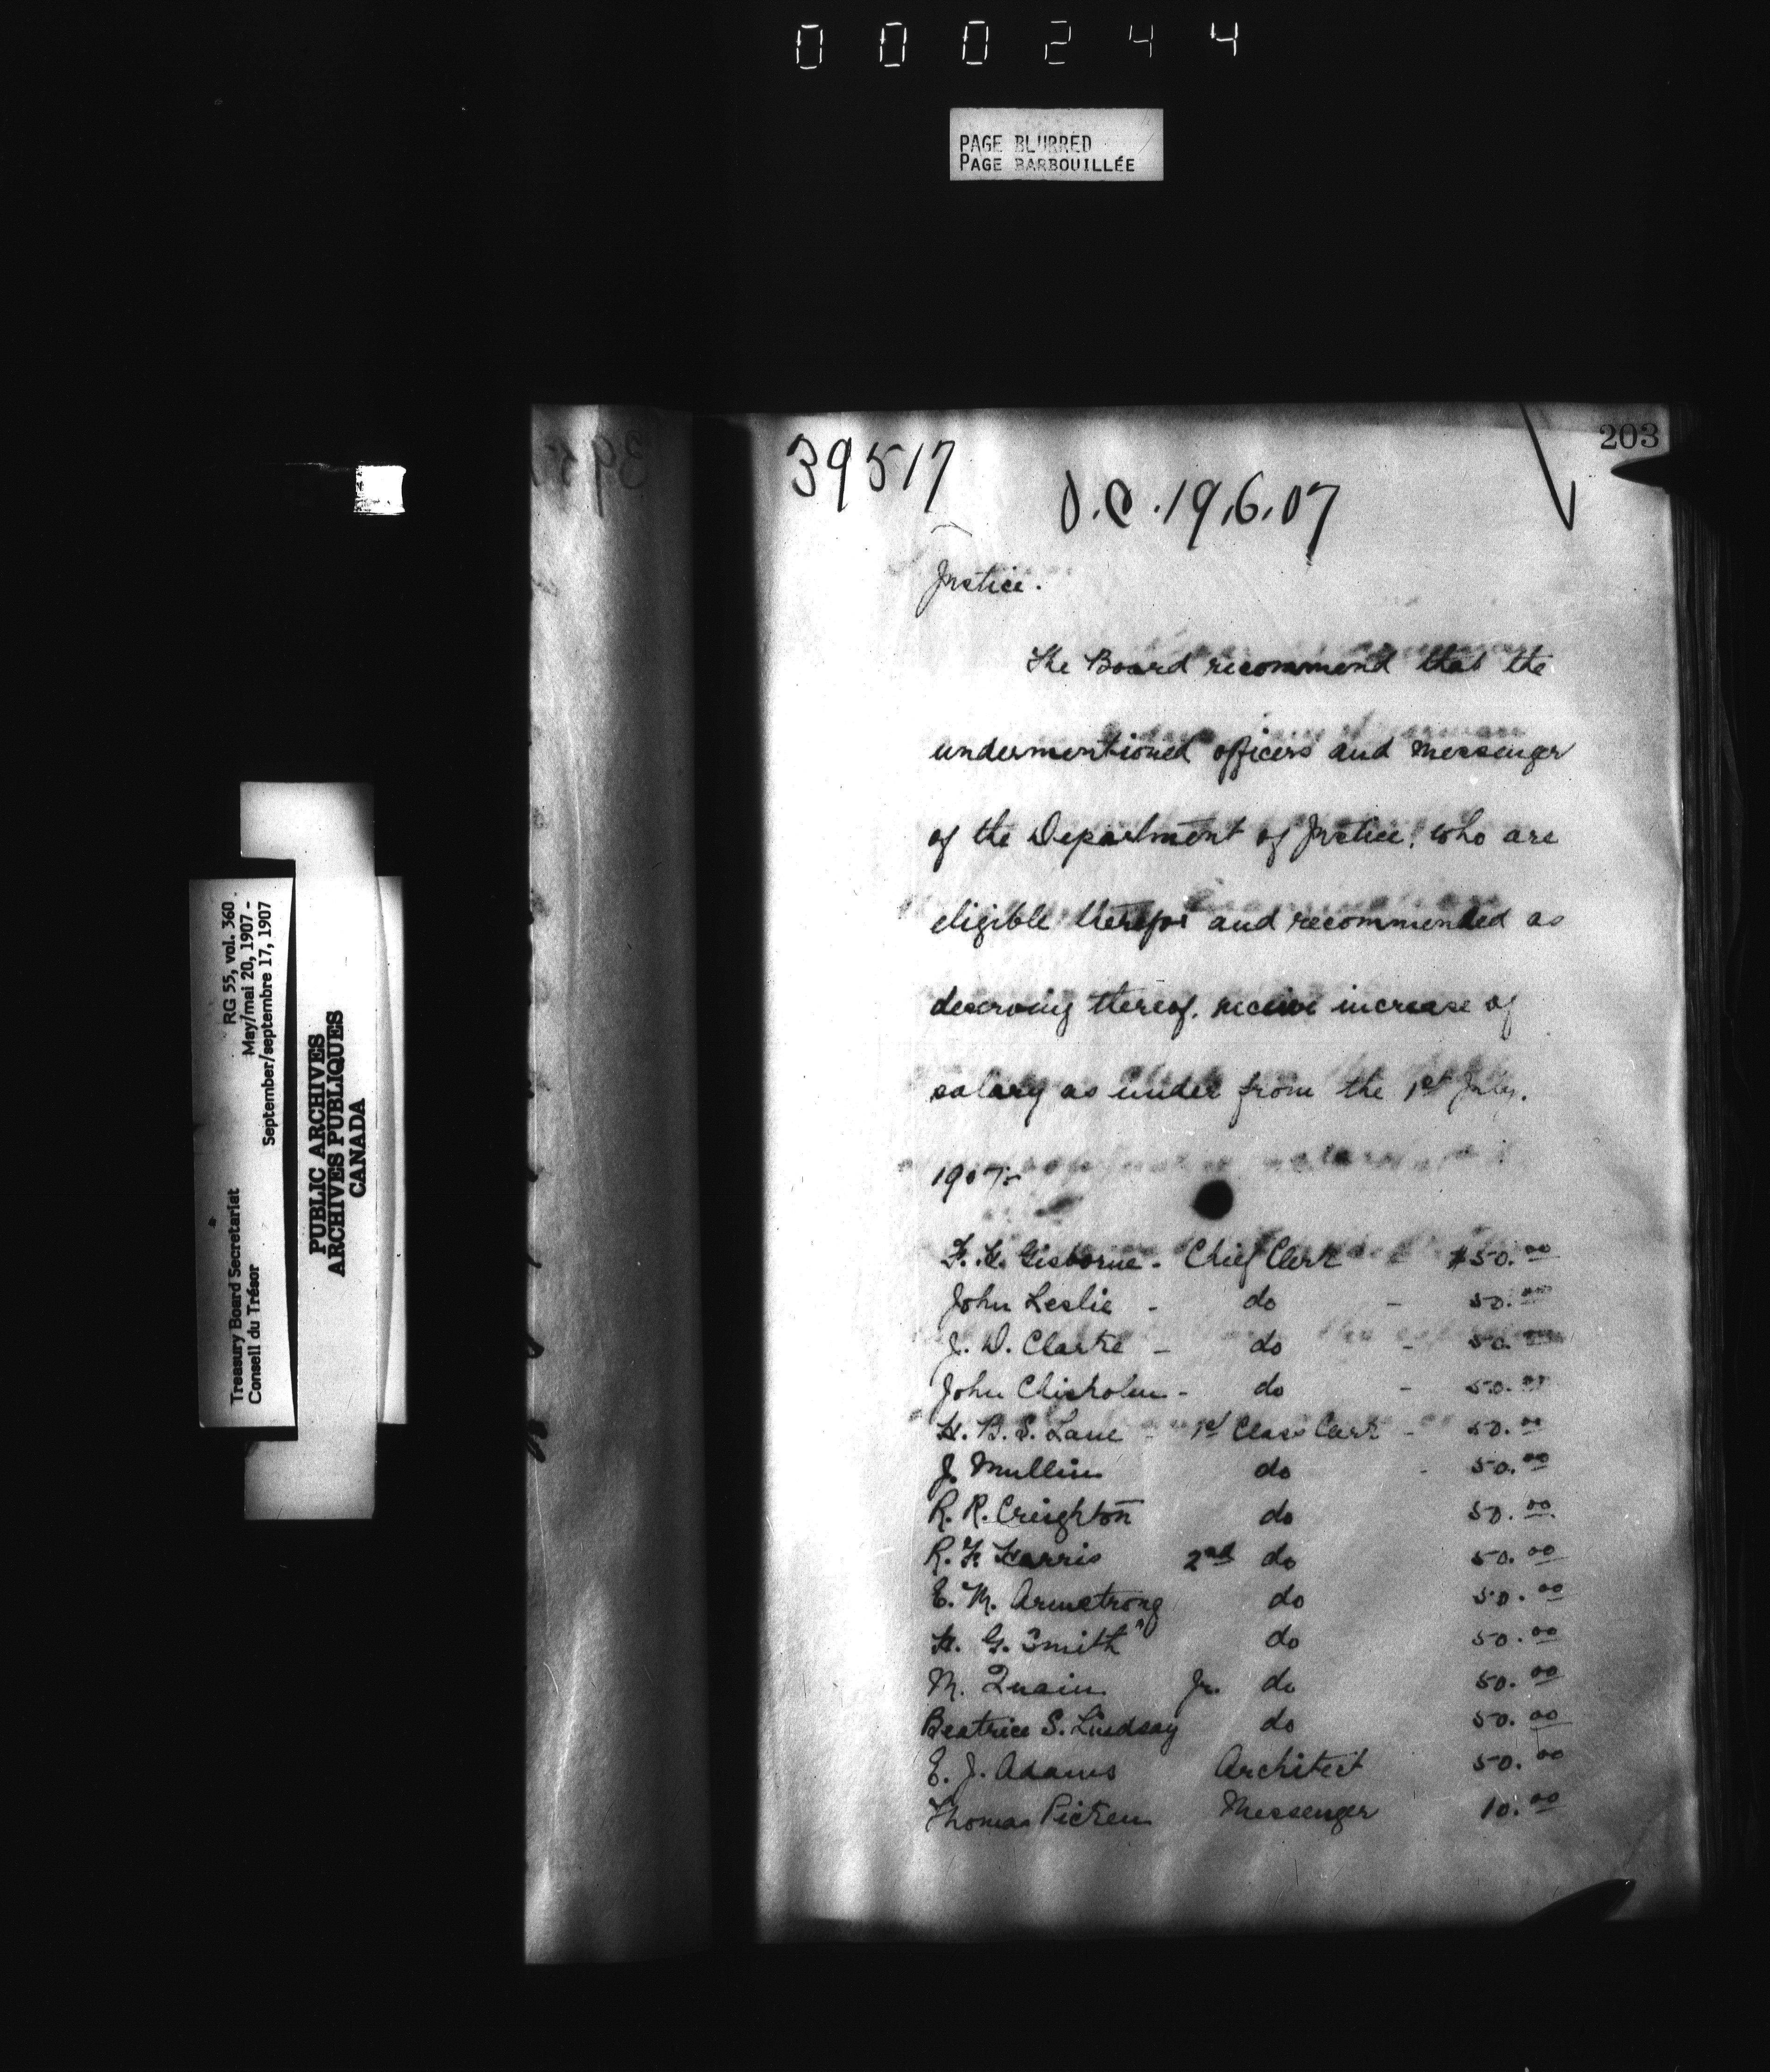 000244
PAGE BLURRED
PAGE BARBOUILLÉE
203
39517
O.C. 19.6.07
Justice.
The Board recommend that the
undermentioned officers and messenger
of the Department of Justice, who are
eligible therefor and recommended as
deserving thereof, receive increase of
salary as under from the 1st July,
1907:-
F. H. Gisborne - Chief Clerk $50.00
John Leslie - do - 50.00
J. D. Clarke - do - 50.00
John Chisholm - do - 50.00
H. B. S. Lane - 1st Class Clerk - 50.00
J. Mullin do - 50.00
R. R. Creighton do 50.00
R. F. Harris 2nd do 50.00
E. M. Armstrong do 50.00
H. G. Smith do 50.00
M. Quain Jr. do 50.00
Beatrice S. Lindsay do 50.00
E. J. Adams Architect 50.00
Thomas Picken Messenger 10.00
Treasury Board Secretariat RG 55, vol. 360
Conseil du Trésor May/mai 20, 1907 -
September/septembre 17, 1907
PUBLIC ARCHIVES
ARCHIVES PUBLIQUES
CANADA